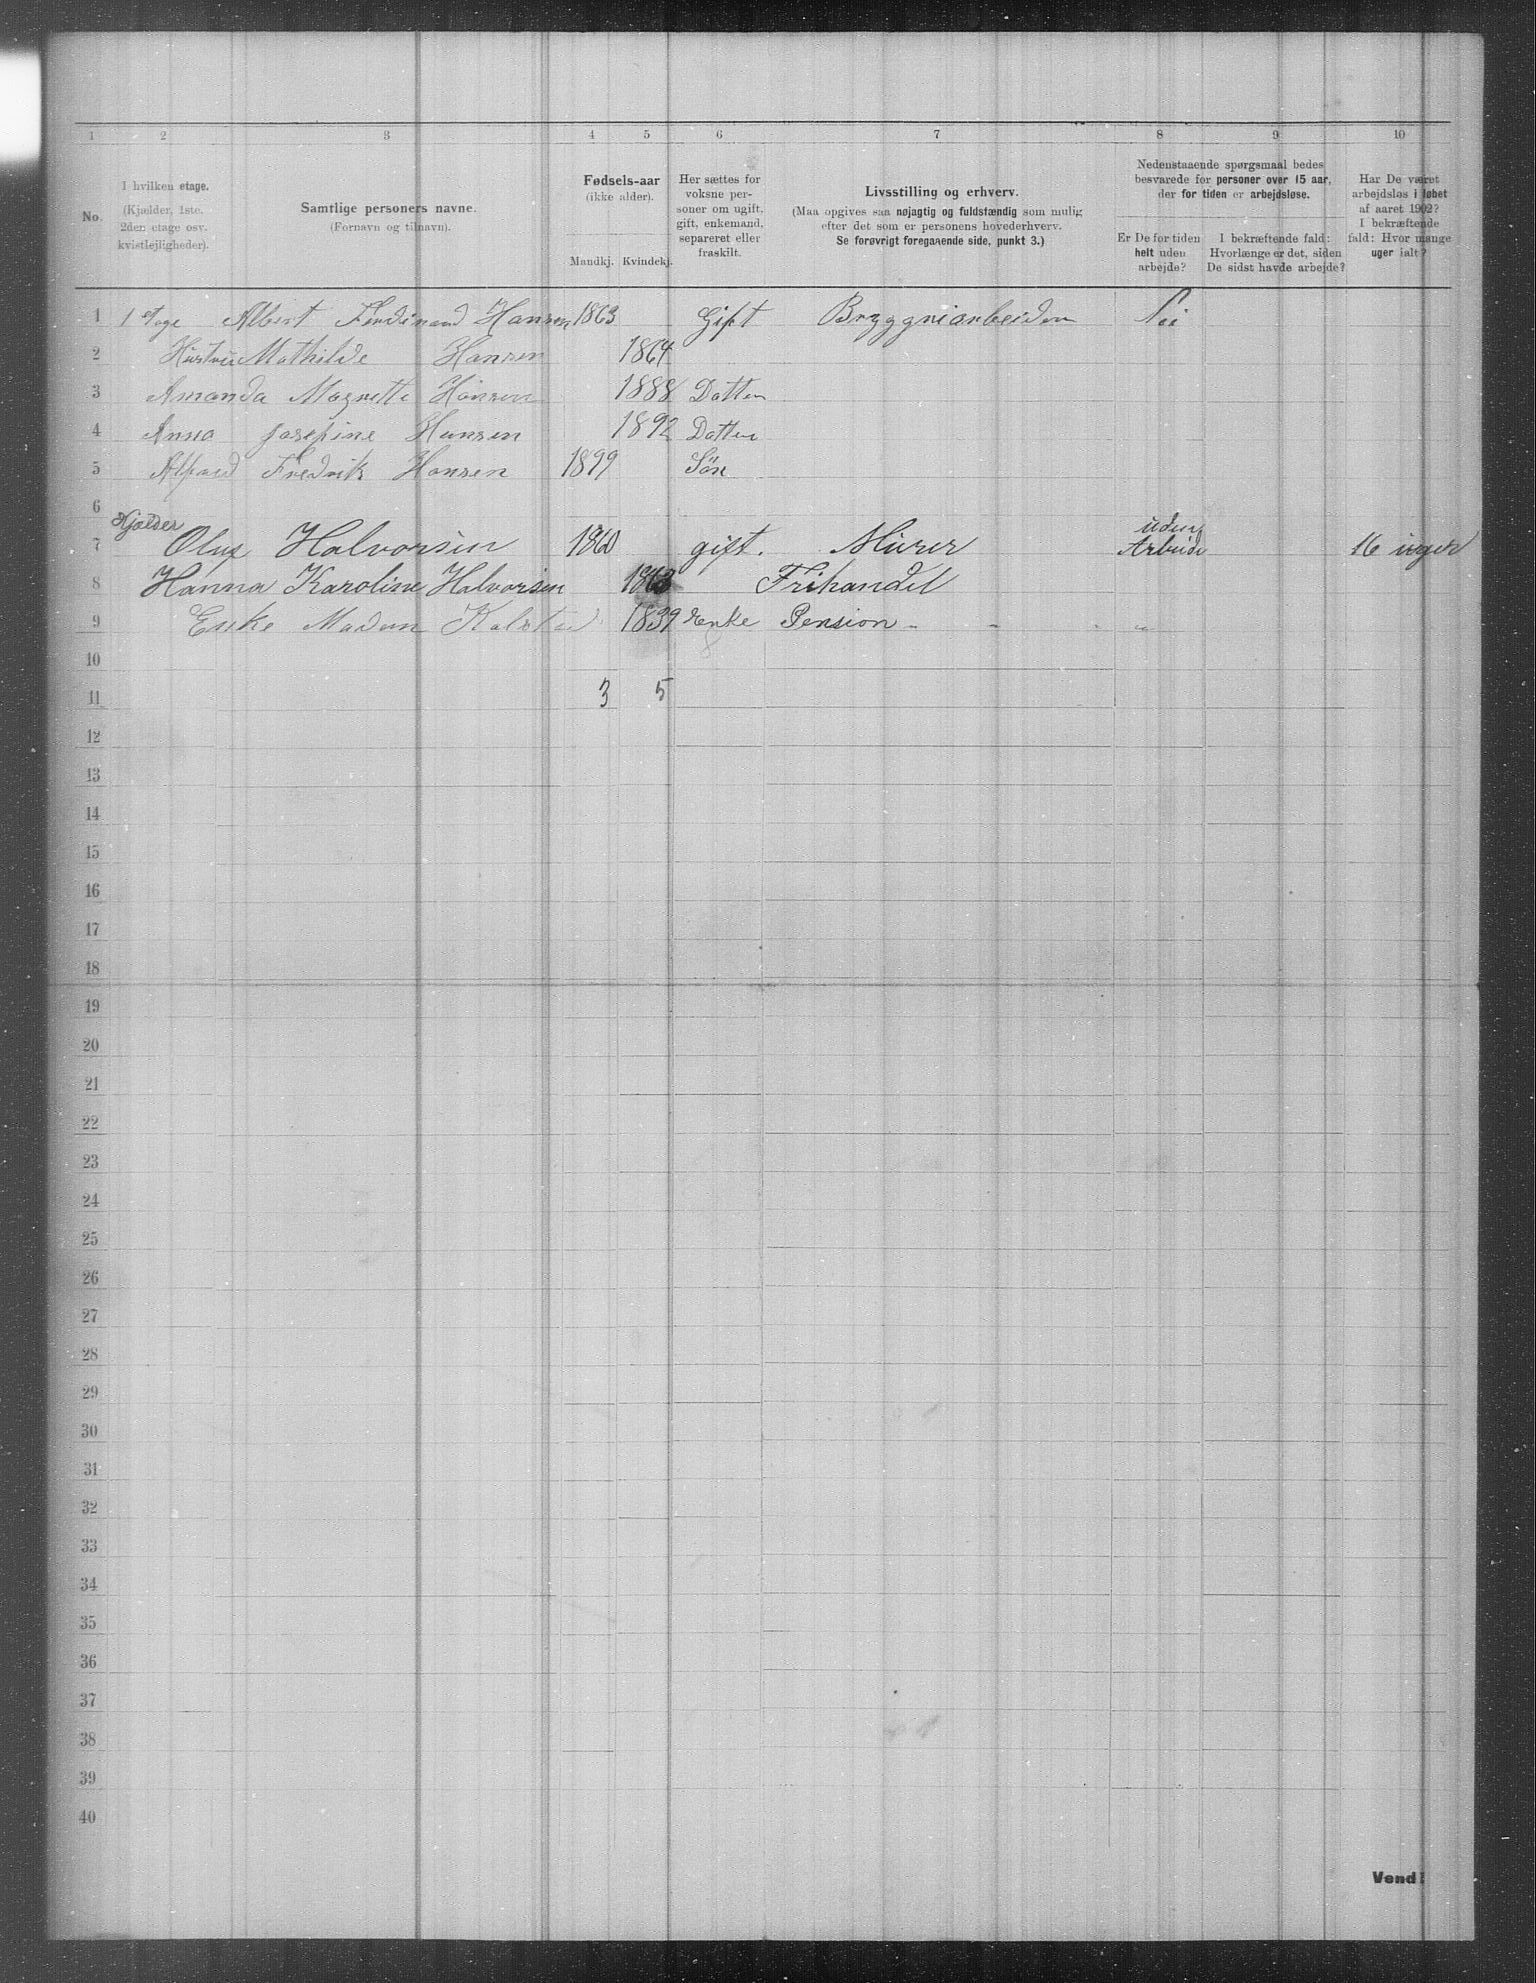 1 2 3 4 5 6 7 8 9 10
No.
I hvilken etage.
(Kjælder, 1ste.
2den etage osv.
kvistlejligheder).
Samtlige personers navne.
(Fornavn og tilnavn).
Fødsels-aar
(ikke alder).
Mandkj. Kvindekj.
Her sættes for
voksne per-
soner om ugift,
gift, enkemand,
separeret eller
fraskilt.
Livsstilling og erhverv.
(Maa opgives saa nøjagtig og fuldstændig som mulig
efter det som er personens hovederhverv.
Se forøvrigt foregaaende side, punkt 3.)
Nedenstaaende spørgsmaal bedes
besvarede for personer over 15 aar,
der for tiden er arbejdsløse.
Er De for tiden
helt uden
arbejde?
I bekræftende fald:
Hvorlænge er det, siden
De sidst havde arbejde?
Har De været
arbejdsløs i løbet
af aaret 1902?
I bekræftende
fald: Hvor mange
uger ialt?
1 1 etage Albert Ferdinand Hansen 1863 Gift Bryggeriarbeider Nei
2 Hustru Mathilde Hansen 1864
3 Amanda Magnette Hansen 1888 Datter
4 Anna Josefine Hansen 1892 Datter
5 Alfard Fredrik Hansen 1899 Søn
6
Kjælder
7 Olaf Halvorsen 1860 gift. Murer uden Arbeide 16 uger
8 Hanna Karoline Halvorsen 1863 Frihandel
9 Enke Madam Kalstad 1839 Enke Pension
10
11 3 5
12
13
14
15
16
17
18
19
20
21
22
23
24
25
26
27
28
29
30
31
32
33
34
35
36
37
38
39
40
Vend!